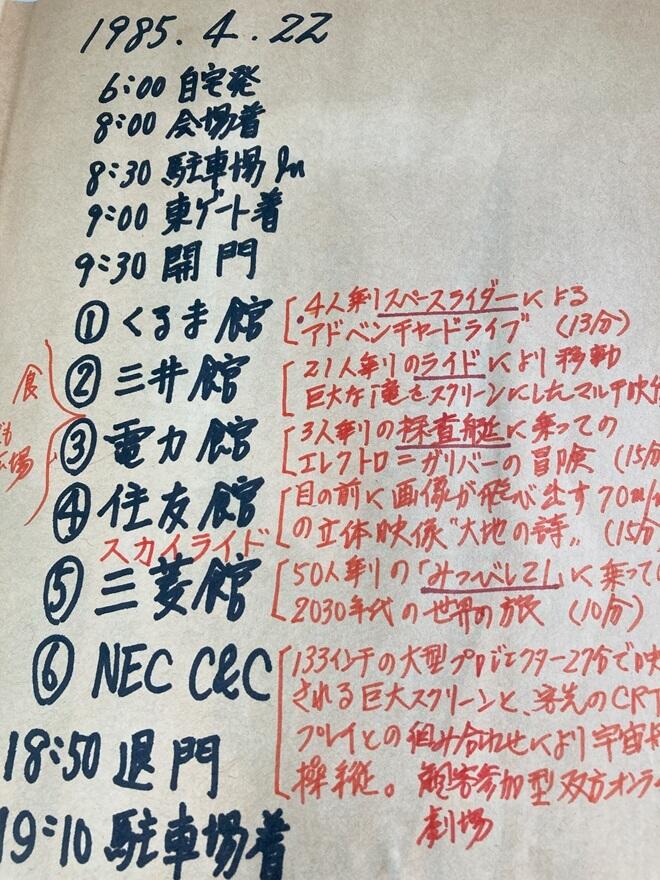 1985.4.22
6:00 自宅発
8:00 会場着
8:30 駐車場 In
9:00 東ゲート着
9:30 開門
① くるま館
・4人乗りスペースライダーによる
アドベンチャードライブ (13分)
② 三井館
21人乗りのライドにより移動
巨大な滝をスクリーンにしたマルチ映像
食
③ 電力館
3人乗りの探査艇に乗っての
エレクトロ=ガリバーの冒険 (15分
広場
④ 住友館
目の前に画像が飛び出す70m/m
の立体映像"大地の詩" (15分
スカイライド
⑤ 三菱館
50人乗りの「みつびし21」に乗って
2030年代の世界の旅 (10分)
⑥ NEC C&C
133インチの大型プロジェクター27台で映
される巨大スクリーンと、客先のCRT
プレイとの組み合わせにより宇宙
操縦。観客参加型双方オンラ
劇場
18:50 退門
19:10 駐車場着